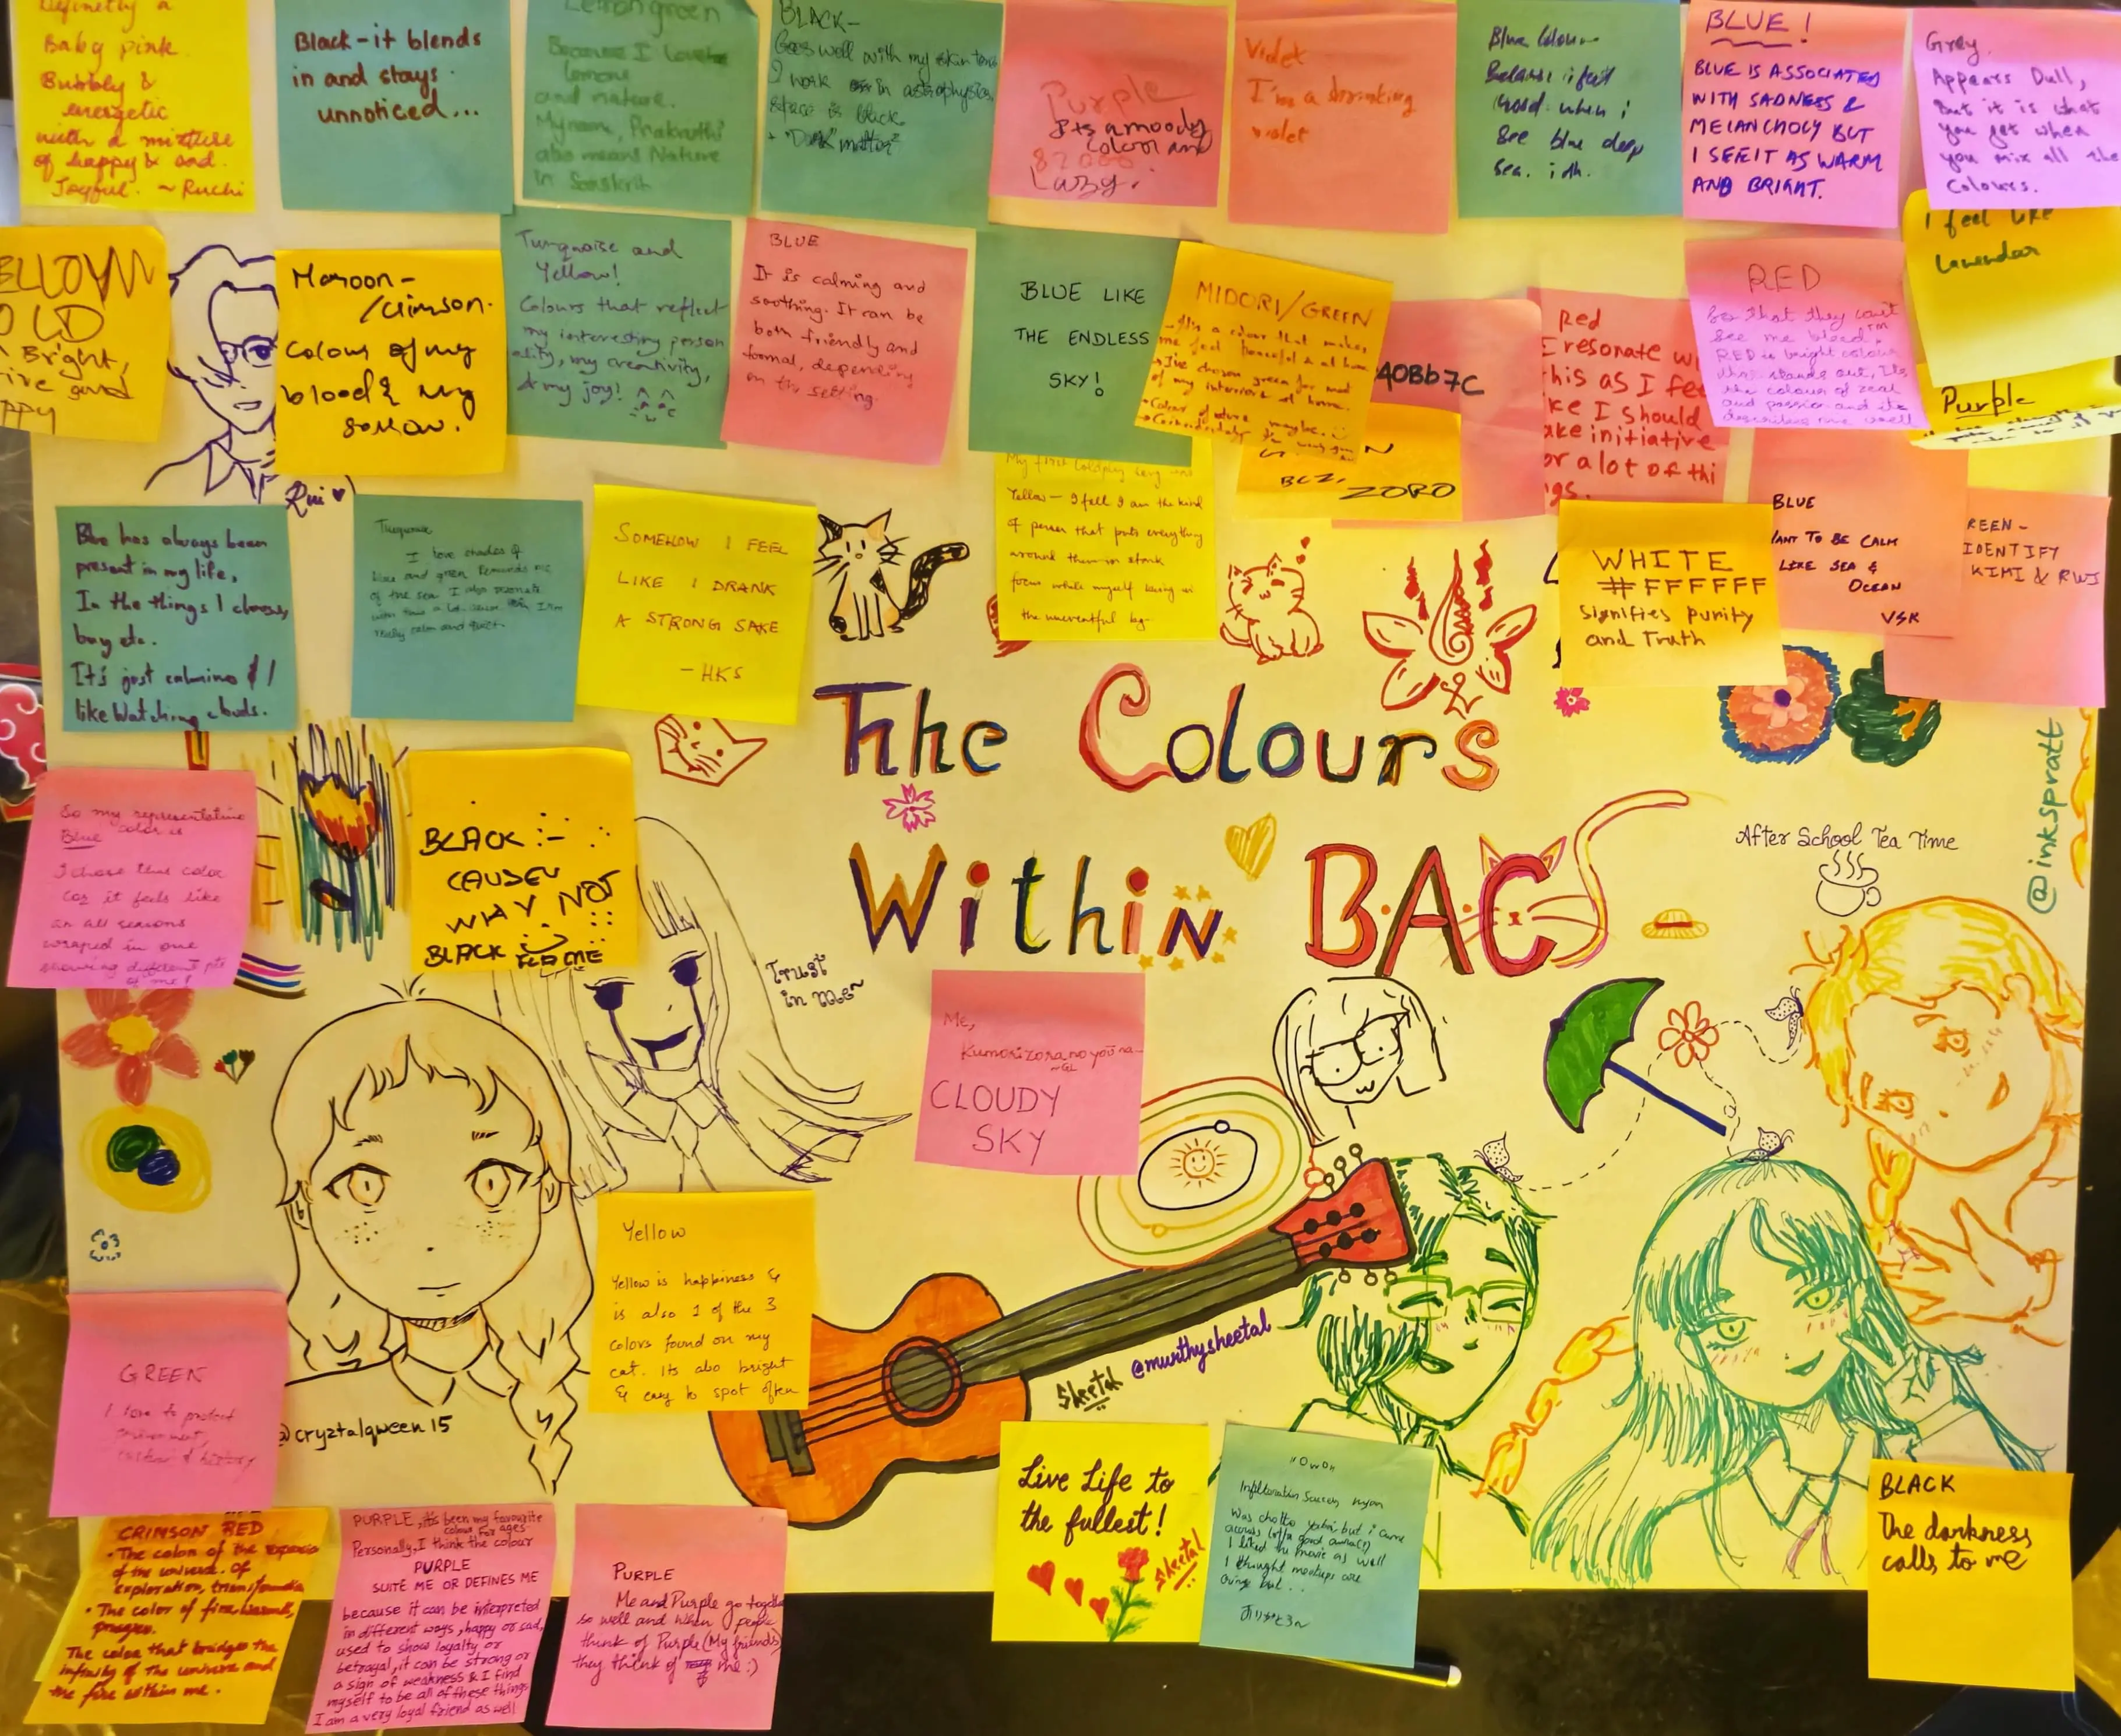 Definetly a
Baby pink.
Bubbly &
energetic
with a mixture
of happy & sad.
Joyful. ~ Ruchi
Black - it blends
in and stays
unnoticed...
Lemongreen
Because I love
lemons
and nature.
My name, Prakruthi
also means Nature
in Sanskrit
BLACK -
Goes well with my skin tone
I work in astrophysics,
space is black
+ "Dark matter"
Purple
Its a moody
colour and
Lazy.
Violet
I'm a drinking
violet
Blue Colour
Because i feel
good when i
See blue deep
sea. idk.
BLUE!
BLUE IS ASSOCIATED
WITH SADNESS &
MELANCHOLY BUT
I SEE IT AS WARM
AND BRIGHT.
Grey.
Appears Dull,
But it is what
you get when
you mix all the
colours.
I feel like
Lavendar
Purple
ELLOW
OLD
Bright,
ive good
PPY
Maroon -
/crimson.
Colour of my
blood & my
sorrow.
Rui
Turquoise and
Yellow!
Colours that reflect
my interesting person
ality, my creativity,
& my joy!
BLUE
It is calming and
soothing. It can be
both friendly and
formal, depending
on the setting.
BLUE LIKE
THE ENDLESS
SKY!
MIDORI/GREEN
- It's a colour that makes
me feel peaceful & at home.
I've chosen green for most
of my interiors at home.
Colour of nature maybe.
40Bb7C
BCZ,
ZORO
Red
I resonate wi
this as I fee
ke I should
ake initiative
or a lot of thi
gs.
RED
So that they can't
see me bleed.™
RED is bright colour
that stands out, Its
the colour of zeal
and passion and its
describes me well
Blue has always been
present in my life,
In the things I choose,
buy etc.
It's just calming
like Watching clouds.
Turquoise
I love shades of
blue and green. Reminds me
of the sea. I also resonate
with this a lot
really calm and quiet.
SOMEHOW I FEEL
LIKE I DRANK
A STRONG SAKE
- HKS
My first Coldplay song was
Yellow - I fell I am the kind
of person that puts everything
around them in stark
focus while myself being in
the uneventful bg-
WHITE
#FFFFFF
Signifies purity
and Truth
BLUE
WANT TO BE CALM
LIKE SEA &
OCEAN
VSK
REEN -
IDENTIFY
KIMI & RWS
The Colours
Within BAC
@inkspratt
After School Tea Time
So my representative
color is
Blue
I chose this color
coz it feels like
an all seasons
wraped in one
showing different pts
of me!
BLACK :-
CAUSEU
WHY NOT
BLACK FLAME
Trust
in me~
Me,
Kumorizora no you na
CLOUDY
SKY
@cryztalqween15
Yellow
Yellow is happiness &
is also 1 of the 3
colors found on my
cat. Its also bright
& easy to spot often
Sheetal
@murthysheetal
GREEN
I love to protect
CRIMSON RED
• The color of the expansion
of the universe. Of
exploration, transformation
• The color of fire, warmth,
progress.
The color that bridges the
infinity of the universe and
the fire within me.
PURPLE, it's been my favourite
colour for ages
Personally, I think the colour
PURPLE
SUITE ME OR DEFINES ME
because it can be interpreted
in different ways, happy or sad,
used to show loyalty or
betrayal, it can be strong or
a sign of weakness & I find
myself to be all of these things
I am a very loyal friend as well
PURPLE
Me and Purple go together
so well and when people
think of Purple (My friends)
they think of me :)
Live Life to
the fullest!
Sheetal
"OwO"
Infiltration Success nyan
Was chotto yabai but i came
across lotta good auras(?)
I liked the movie as well
I thought meetups are
cringe but..
ありがとう~
BLACK
The darkness
calls to me